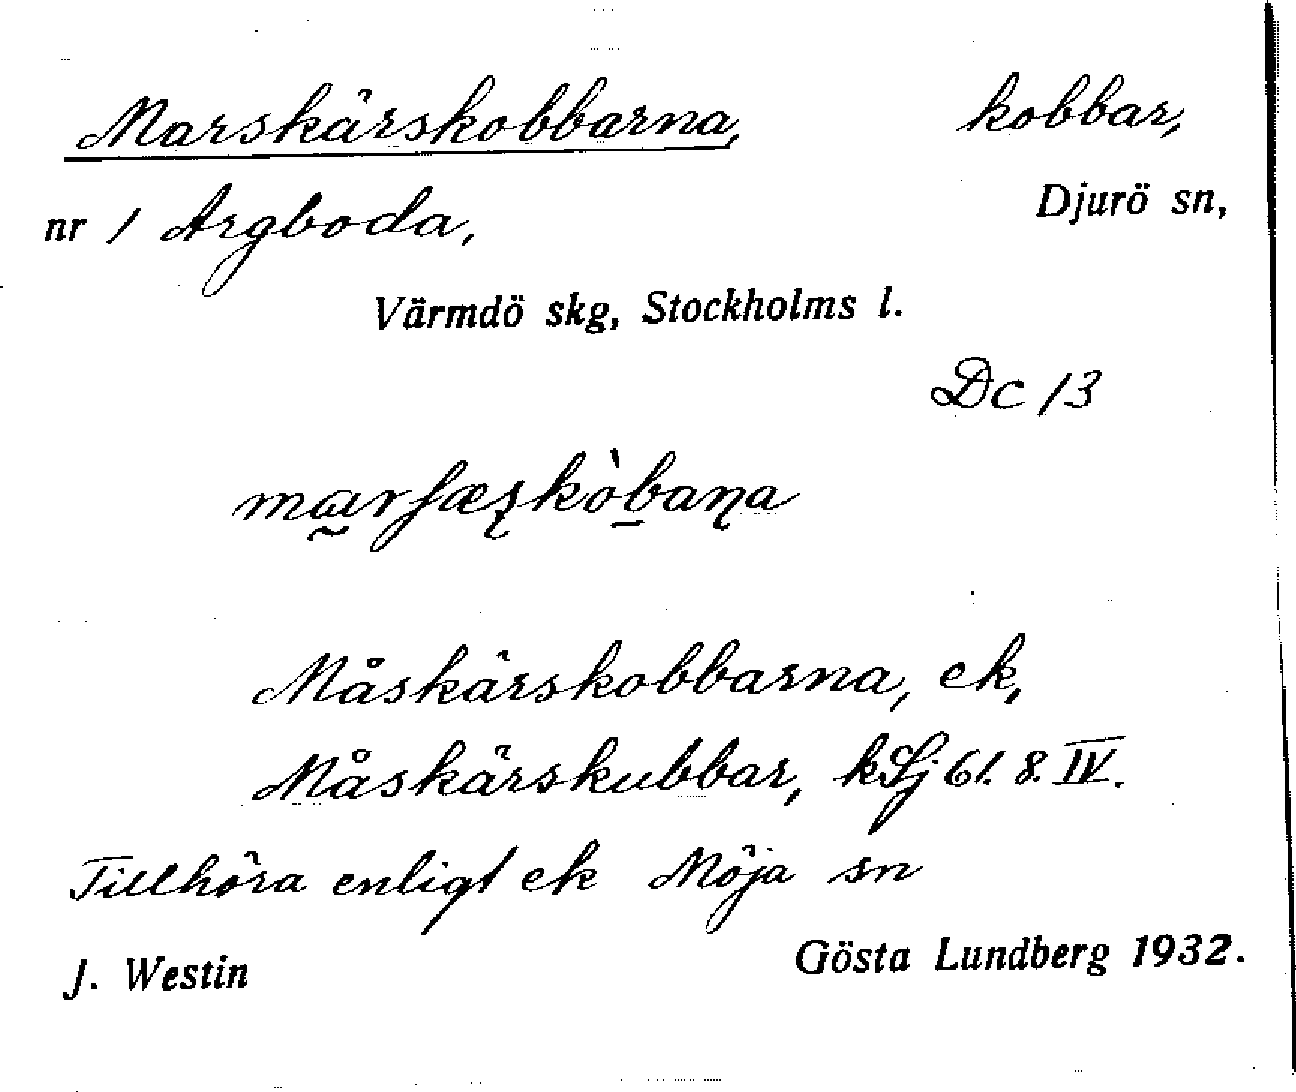 Marskärskobbarna, kobbar,
nr 1 Argboda, Djurö sn,
Värmdö skg, Stockholms l.
Dc 13
Måskärskobbarna, ek,
Måskärskubbar, kSj 61. 8. IV.
Tillhöra enligt ek Möja sn
J. Westin Gösta Lundberg 1932.